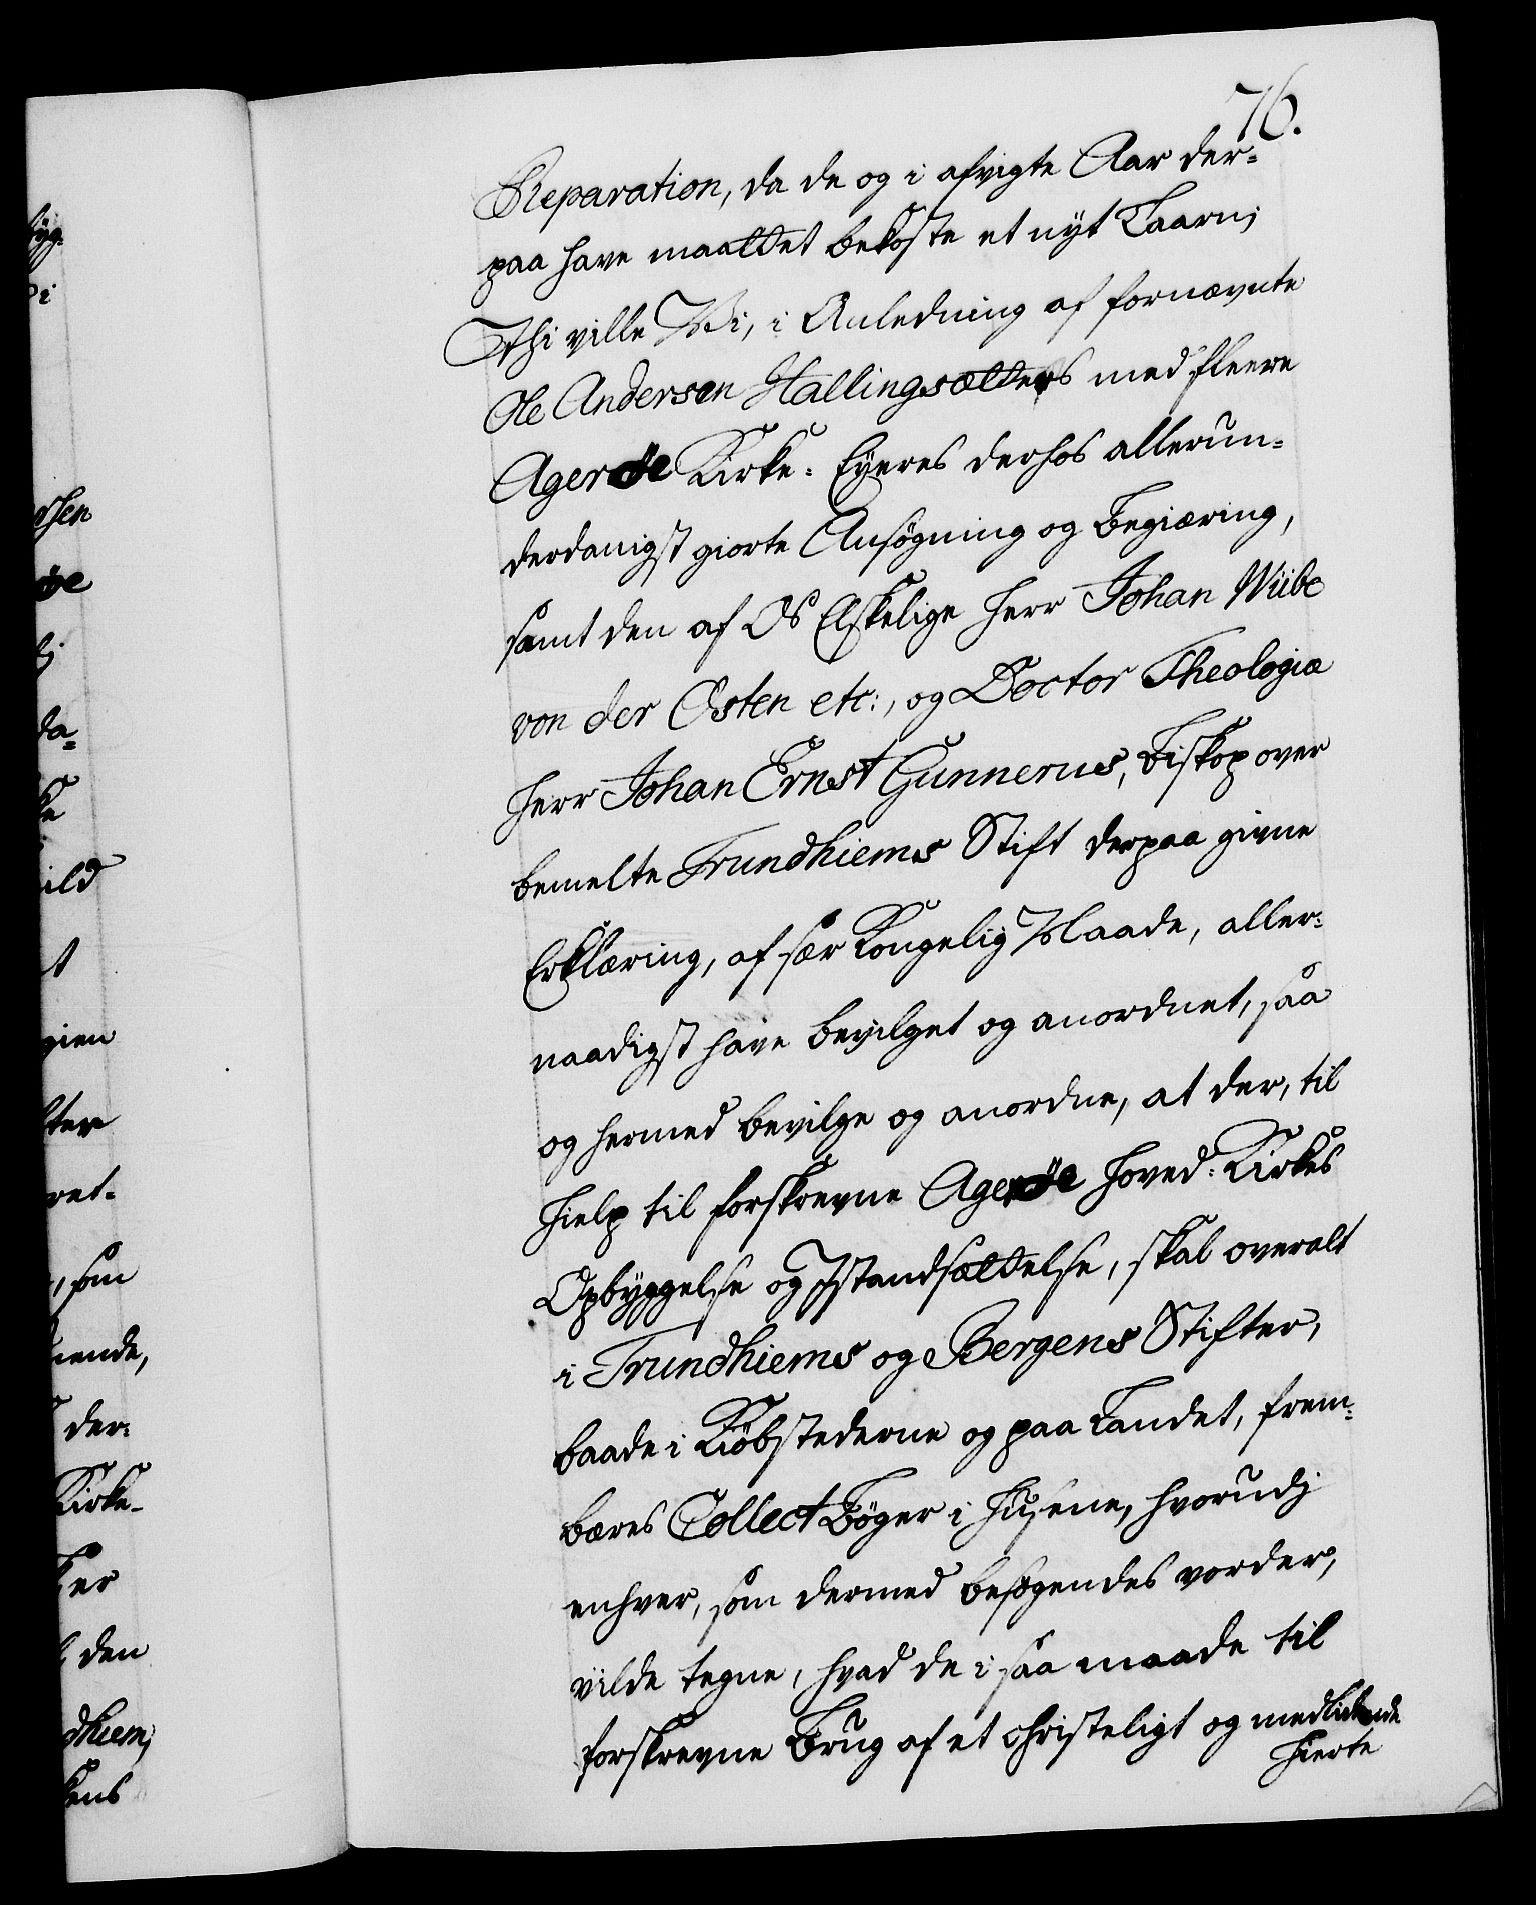 76.
Reparation, da de og i afvigte Aar der=
paa have maattet bekoste et nyt Taarn;
Thi ville Vi, i Anledning af fornævnte
Ole Andersen Hallingsætters med fleere
Agerøe Kirke-Eyeres derhos allerun=
derdanigst giorte Ansøgning og Begiæring,
samt den af Os Elskelige Herr Johan Wiibe
von der Osten etc:, og Doctor Theologiæ
Herr Johan Ernst Gunnerus, Biskop over
bemelte Trundhiems Stift derpaa givne
Erklæring, af sær Kongelig Naade, aller=
naadigst have bevilget og anordnet, saa
og hermed bevilge og anordne, at der, til
Hielp til forskrevne Agerøe Hoved-Kirkes
Opbyggelse og Istandsættelse, skal overalt
i Trundhiems og Bergens Stifter,
baade i Kiøbstederne og paa Landet, frem=
bæres Collect Bøger i Husene, hvorudj
enhver, som dermed besøgendes vorder,
vilde tegne, hvad de i saa maade til
forskrevne Brug af et Christeligt og medlidende
Hierte
byg=
i
rsen
øe
j
da=
ke
ild
t
gien
ter
ret=
, som
nende,
der=
Kirke-
ker
den
dhiem;
kens